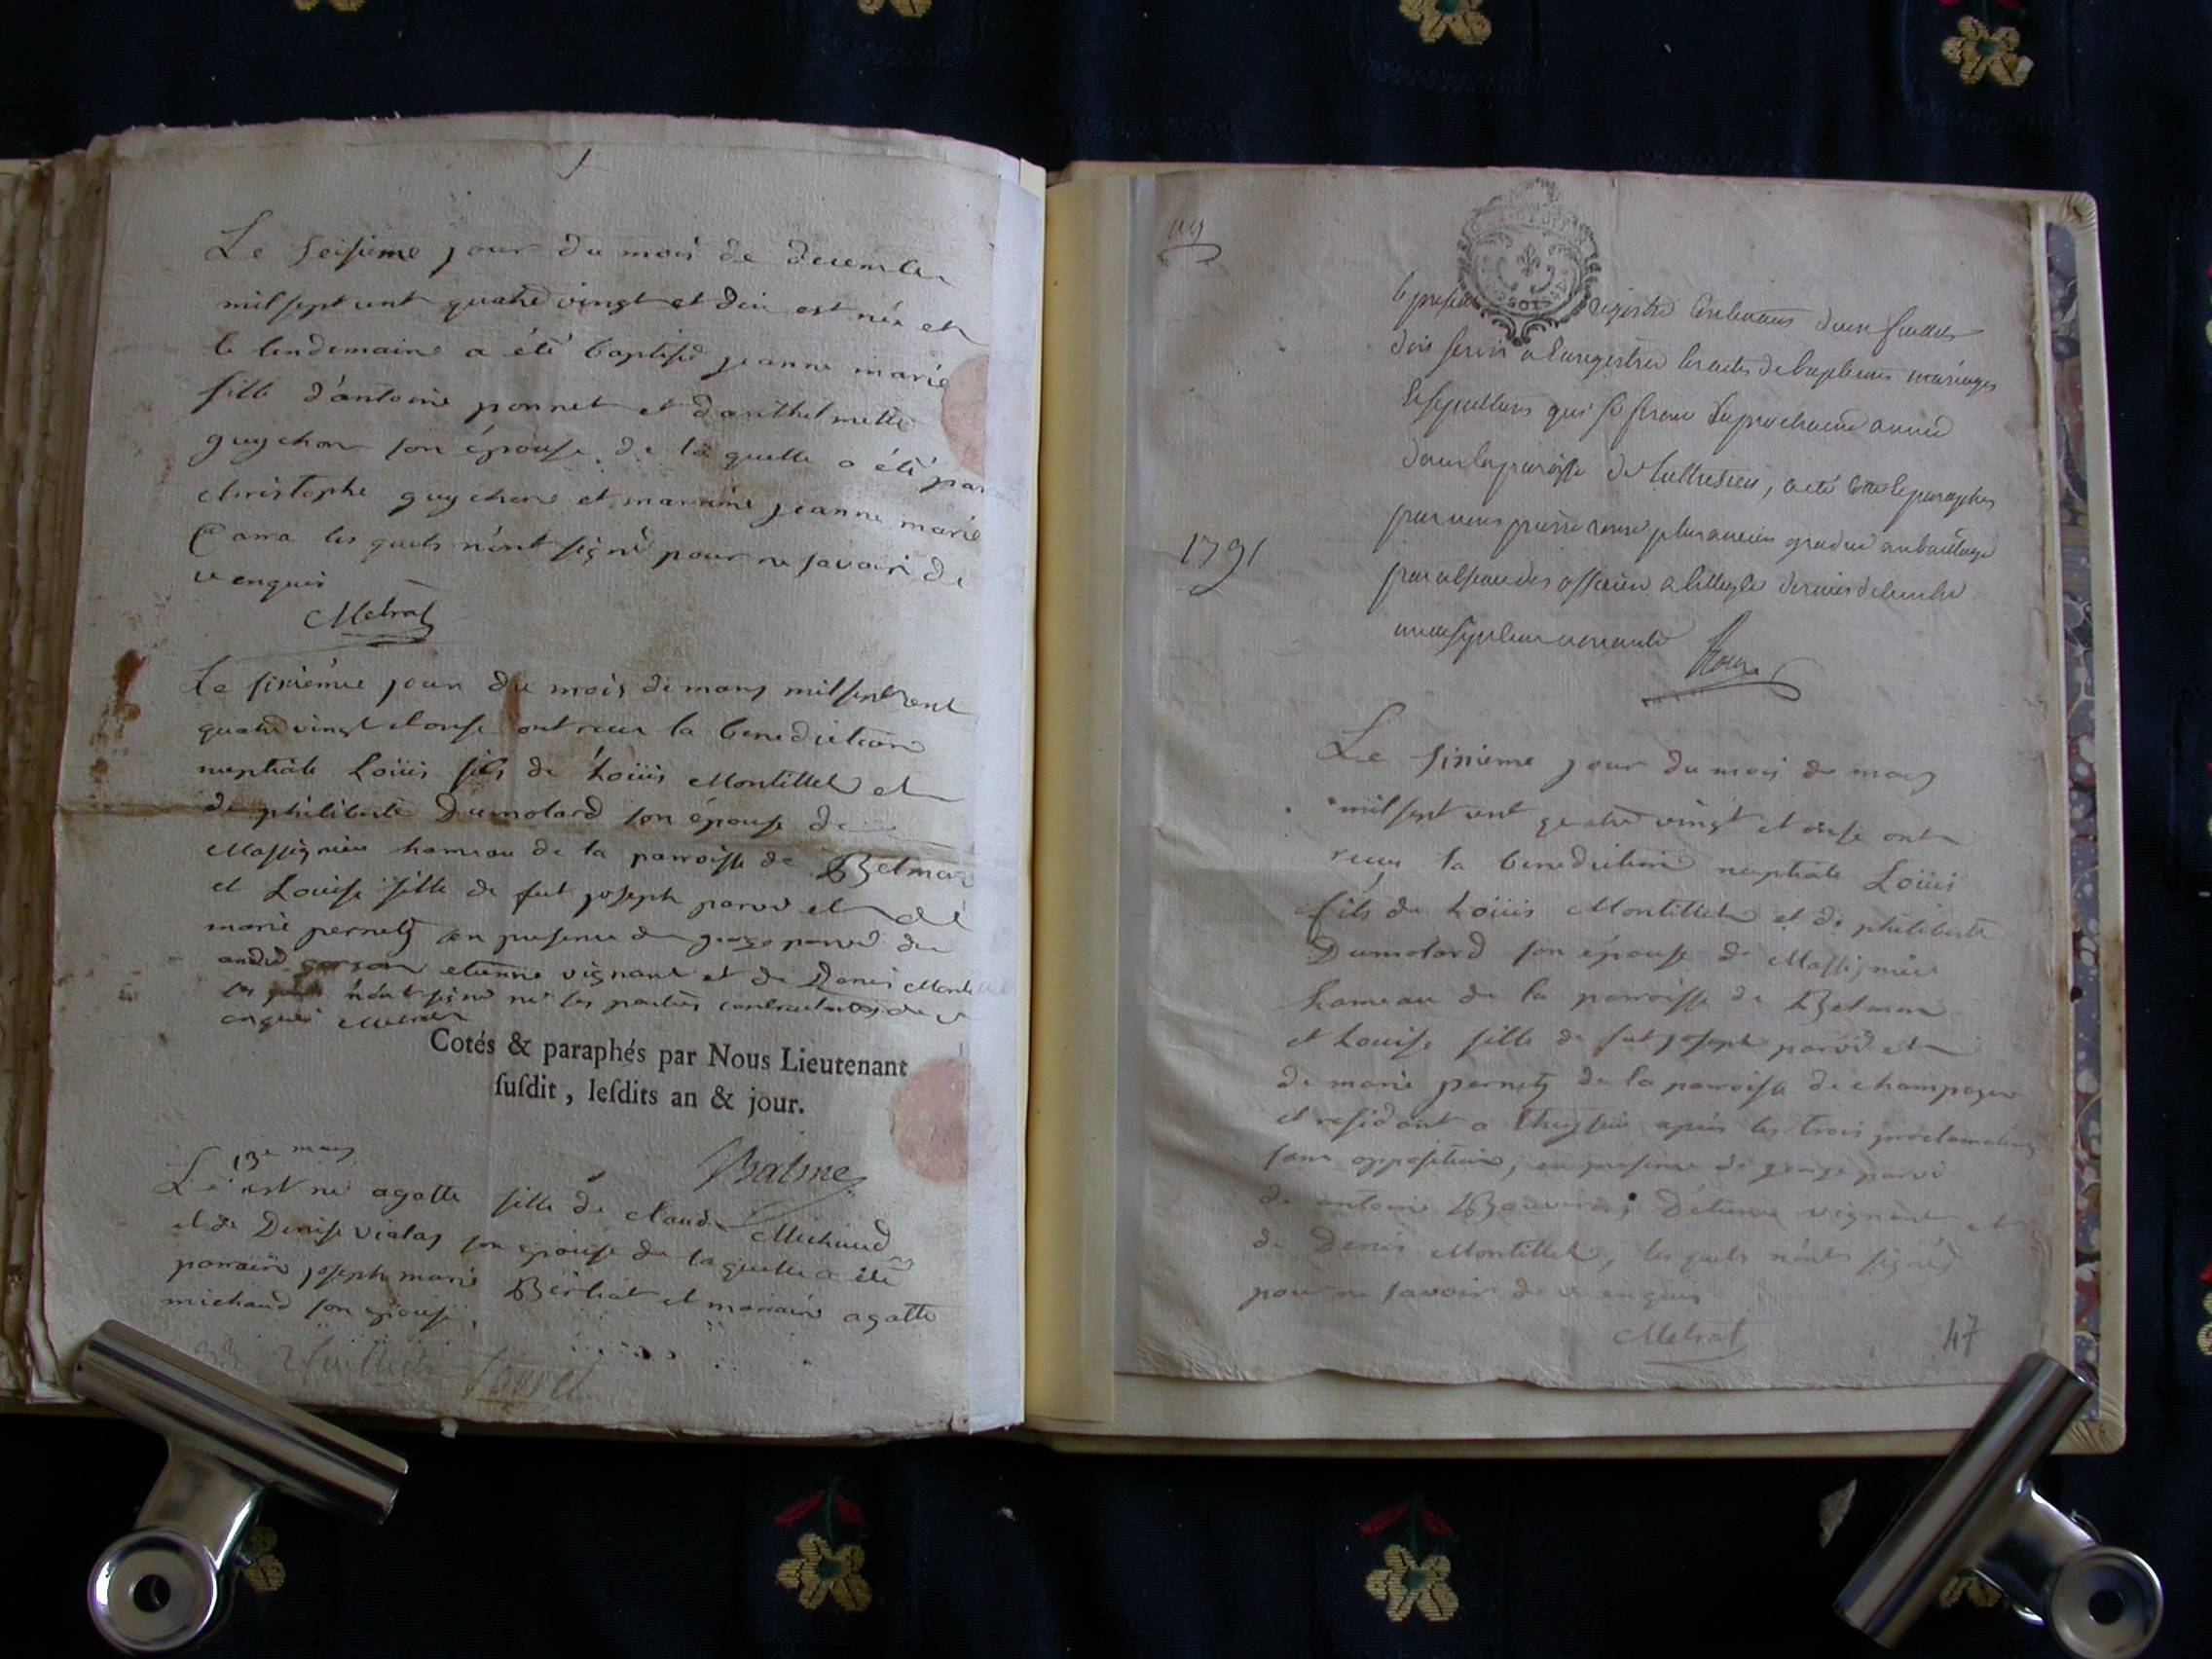 Le seisieme jour du mois de decembre
mil sept cent quatre vingt et dix est née et
le lendemain a été baptisé jeanne marie
fille d'antoine ponnet et de barthelmette
guychon son épouse de la quelle a été parain
christophe guychon et maraine jeanne marie
les quels n'ont signé pour ne savoir de
ce enquis
Metrat
Le sixiéme jour du mois de mars mil sept cent
quatre vingt et onse ont recu la benediction
nuptiale Loüis fils de Loüis Montillet et
de philiberte Dumolard son épouse de
Massignieu hameau de la parroisse de Belmon
et Louise fille de feut joseph parvi et de
marie pernety en presence de george parvi de
andré etienne vignant et de Denis Mont
les quels n'ont signé ni les parties contractantes de ce
enquis Metrat
Cotés & paraphés par Nous Lieutenant
susdit, lesdits an & jour.
Balme
13e mars
Le est né agatte fille de claude Michaud
et de Denise vialay son épouse de la quelle a été
parrain joseph marie Berliat et maraine agatte
michaud son épouse
1791
le present registre contenant deux feuillets
dois servir a Enregistrer les actes de baptemes mariages
et sepultures qui se feront la prochaine année
dans la paroisse de , a été cotté et paraphés
par nous plus ancien gradué au bailliage
par absence des officiers a Belley le dernier decembre
mil sept cent nonante
Le sixieme jour du mois de mars
mil sept cent quatre vingt et onse ont
recu la benediction nuptiale Loüis
fils de Loüis Montillet et de philiberte
Dumolard son épouse de Massignieu
hameau de la parroisse de Belmon
et Louise fille de feut joseph parvi et
de marie pernety de la parroisse de champagne
et residant a après les trois proclamations
sans opposition, en presence de george parvi
de antoine Bouvier, d'étienne vignant et
de Denis Montillet, les quels n'ont signés
pour ne savoir de ce enquis
Metrat
47